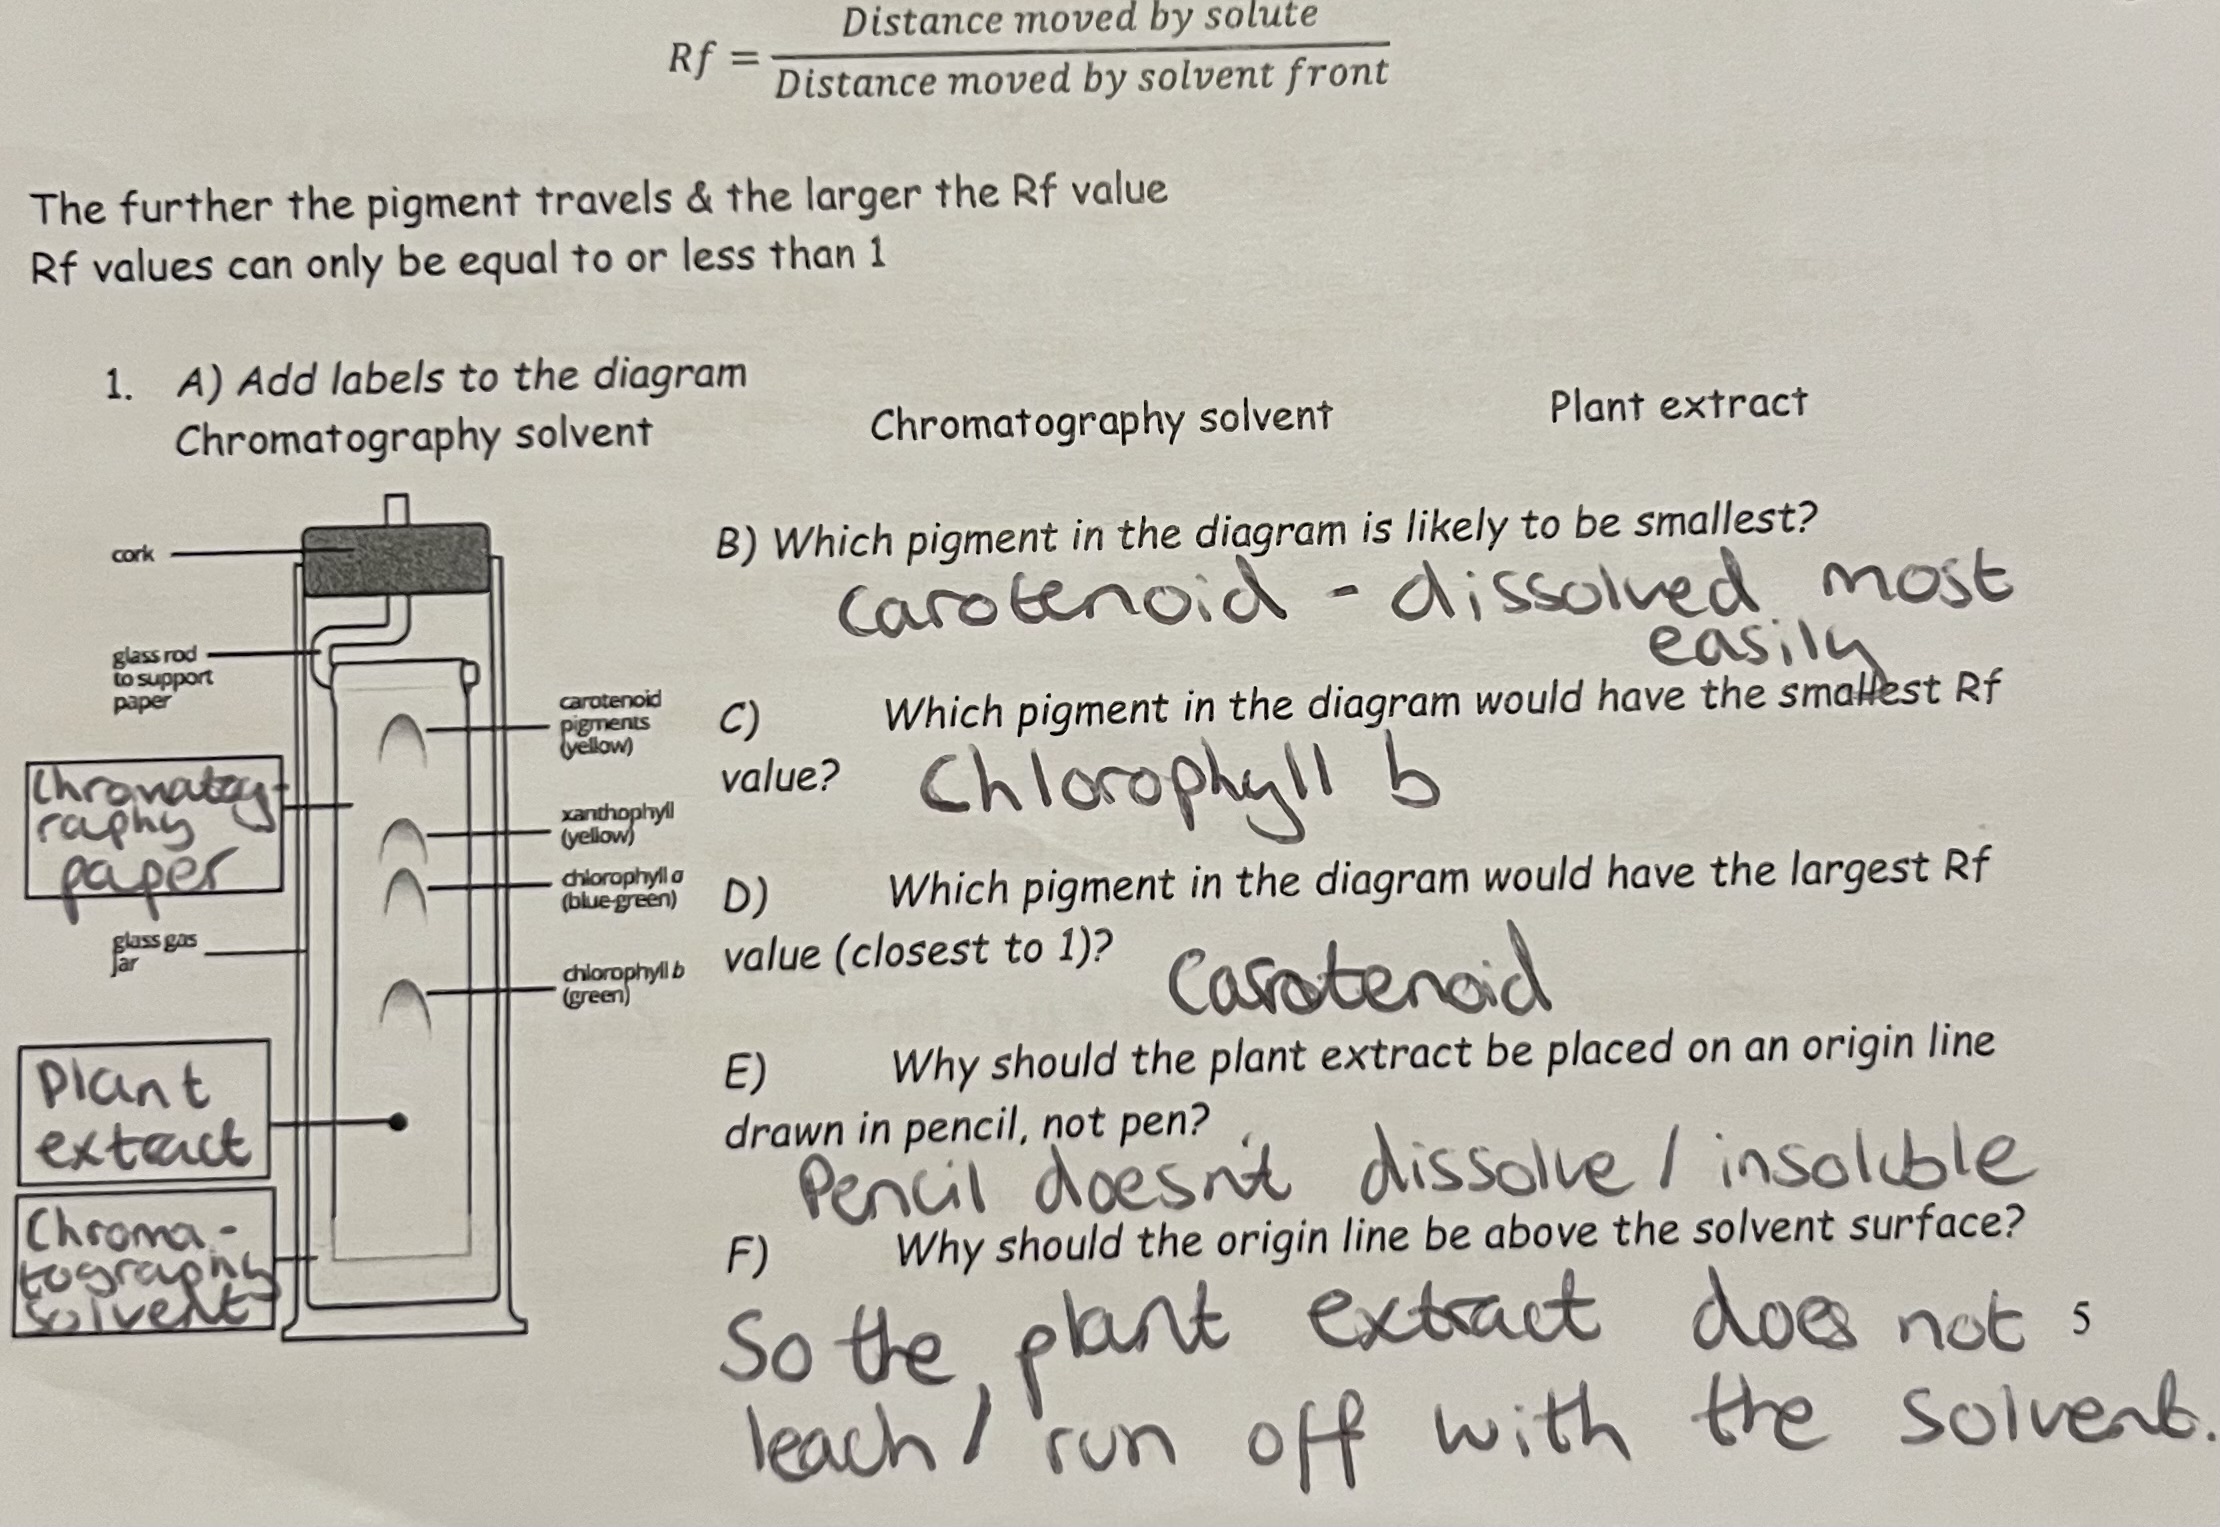 Rf = Distance moved by solute
Distance moved by solvent front
The further the pigment travels & the larger the Rf value
Rf values can only be equal to or less than 1
1. A) Add labels to the diagram
Chromatography solvent Chromatography solvent Plant extract
cork
glass rod
to support
paper
Chromatog-
raphy
paper
glass gas
jar
Plant
extract
Chroma-
tography
solvent
carotenoid
pigments
(yellow)
xanthophyll
(yellow)
chlorophyll a
(blue-green)
chlorophyll b
(green)
B) Which pigment in the diagram is likely to be smallest?
Carotenoid - dissolved most
easily
C) Which pigment in the diagram would have the smallest Rf
value? Chlorophyll b
D) Which pigment in the diagram would have the largest Rf
value (closest to 1)? Carotenoid
E) Why should the plant extract be placed on an origin line
drawn in pencil, not pen?
Pencil doesn't dissolve / insoluble
F) Why should the origin line be above the solvent surface?
So the plant extract does not
leach / run off with the solvent.
5